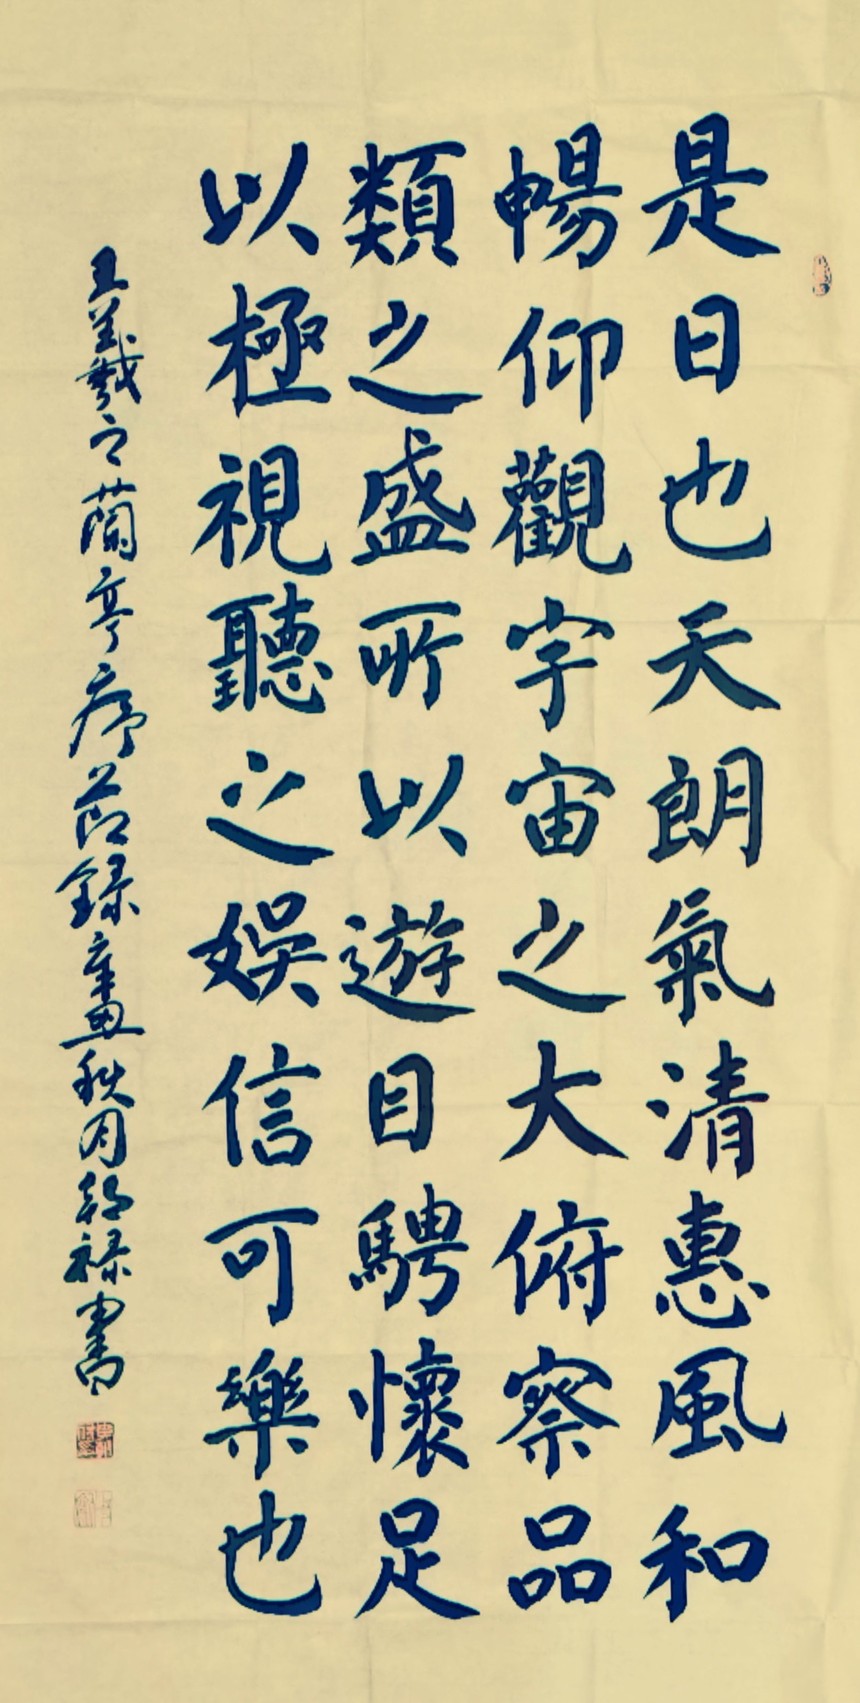 是日也天朗氣清惠風和
暢仰觀宇宙之大俯察品
類之盛所以遊目騁懷足
以極視聽之娛信可樂也
王羲之蘭亭序節錄辛丑秋月 祿書